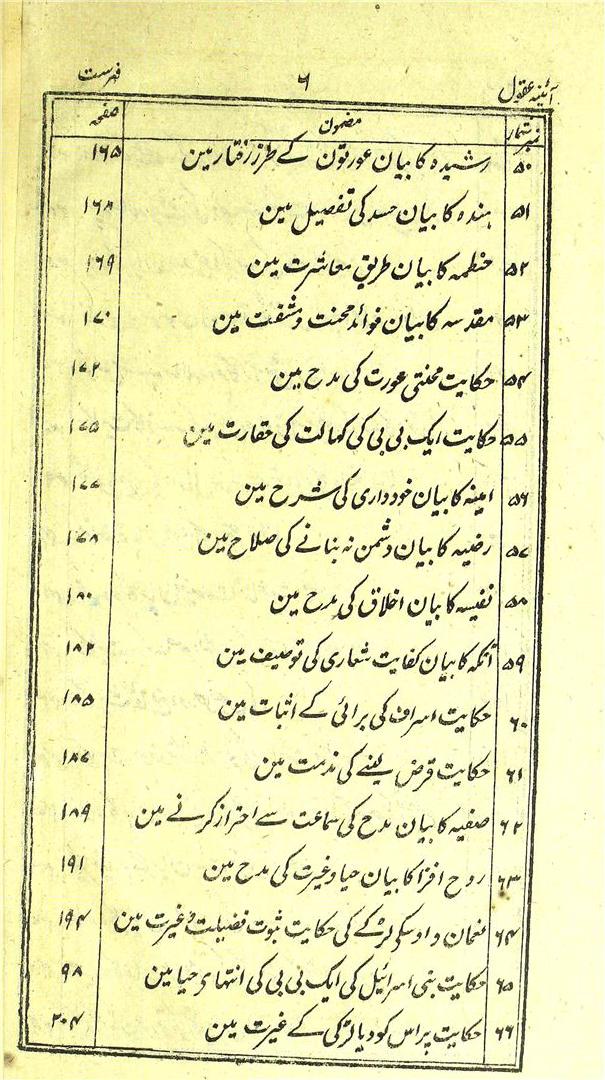 آئینہ عقول ۶ فہرست
نمبر شمار مضمون صفحہ
۵۰ رشیدہ کا بیان عورتون کے طرز رفتار مین ۱۶۵
۵۱ ہندہ کا بیان حسد کی تفصیل مین ۱۶۸
۵۲ حنظمہ کا بیان طریق معاشرت مین ۱۶۹
۵۳ مقدسہ کا بیان فوائد محنت و مشقت مین ۱۷۰
۵۴ حکایت محنتی عورت کی مدح مین ۱۷۲
۵۵ حکایت ایک بی بی کی کہالت کی حقارت مین ۱۷۵
۵۶ امینہ کا بیان خودداری کی شرح مین ۱۷۷
۵۷ رضیہ کا بیان دشمن نہ بنانے کی صلاح مین ۱۷۸
۵۸ نفیسہ کا بیان اخلاق کی مدح مین ۱۸۰
۵۹ آتکہ کا بیان کفایت شعاری کی توصیف مین ۱۸۲
۶۰ حکایت اسراف کی برائی کے اثبات مین ۱۸۵
۶۱ حکایت قرض لینے کی مذمت مین ۱۸۷
۶۲ صفیہ کا بیان مدح کی سماعت سے احتراز کرنے مین ۱۸۹
۶۳ روح افزا کا بیان حیا و غیرت کی مدح مین ۱۹۱
۶۴ نعمان و اوسکی لڑکے کی حکایت ثبوت فضیلت و غیرت مین ۱۹۴
۶۵ حکایت بنی اسرائیل کی ایک بی بی کی انتہاے حیا مین ۹۸
۶۶ حکایت پراس کودیا لڑکی کے غیرت مین ۲۰۴